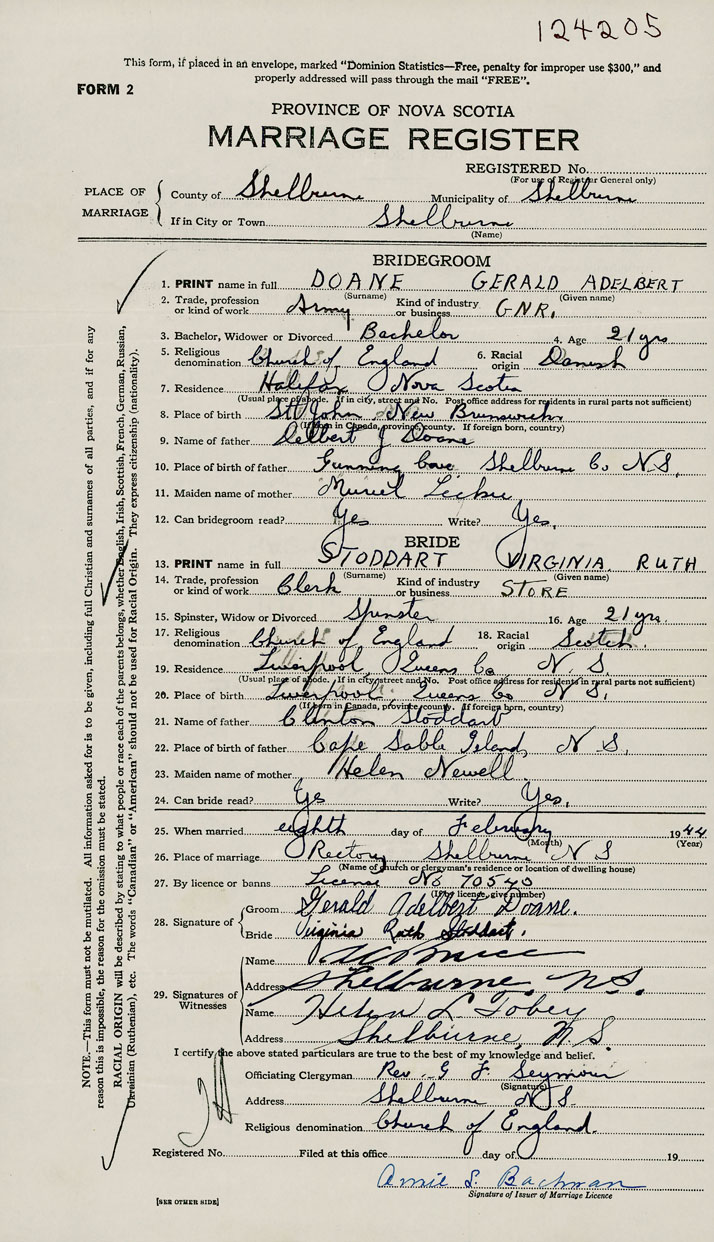 124205
This form, if placed in an envelope, marked "Dominion Statistics—Free, penalty for improper use $300," and
properly addressed will pass through the mail "FREE".
FORM 2
PROVINCE OF NOVA SCOTIA
MARRIAGE REGISTER
REGISTERED No.
(For use of Registrar General only)
PLACE OF MARRIAGE
County of Shelburne Municipality of Shelburne
If in City or Town Shelburne
(Name)
BRIDEGROOM
1. PRINT name in full DOANE GERALD ADELBERT
(Surname) (Given name)
2. Trade, profession or kind of work Army Kind of industry or business GNR.
3. Bachelor, Widower or Divorced Bachelor 4. Age 21 yrs
5. Religious denomination Church of England 6. Racial origin Danish
7. Residence Halifax Nova Scotia
(Usual place of abode. If in city, street and No. Post office address for residents in rural parts not sufficient)
8. Place of birth St John New Brunswick
(If born in Canada, province, county. If foreign born, country)
9. Name of father Delbert J Doane
10. Place of birth of father Gunning Cove Shelburne Co N.S.
11. Maiden name of mother Muriel
12. Can bridegroom read? Yes Write? Yes,
BRIDE
13. PRINT name in full STODDART VIRGINIA RUTH
(Surname) (Given name)
14. Trade, profession or kind of work Clerk Kind of industry or business STORE
15. Spinster, Widow or Divorced Spinster 16. Age 21 yrs.
17. Religious denomination Church of England 18. Racial origin Scotch.
19. Residence Liverpool, Queens Co N. S.
(Usual place of abode. If in city, street and No. Post office address for residents in rural parts not sufficient)
20. Place of birth Liverpool. Queens Co N S,
(If born in Canada, province, county. If foreign born, country)
21. Name of father Clinton Stoddart
22. Place of birth of father Cape Sable Island, N S.
23. Maiden name of mother Helen Newell
24. Can bride read? Yes Write? Yes,
25. When married eighth day of February 1944
(Month) (Year)
26. Place of marriage Rectory Shelburne N S
(Name of church or clergyman's residence or location of dwelling house)
27. By licence or banns License No 70540
(If by license, give number)
28. Signature of
Groom Gerald Adelbert Doane.
Bride Virginia Ruth Stoddart.
29. Signatures of Witnesses
Name
Address Shelburne, N.S.
Name Helen L Tobey
Address Shelburne, N.S.
I certify the above stated particulars are true to the best of my knowledge and belief.
Officiating Clergyman Rev. G F Seymour
(Signature)
Address Shelburne N.S.
Religious denomination Church of England.
Registered No. Filed at this office day of 19
Annie L. Bachman
Signature of Issuer of Marriage Licence
[SEE OTHER SIDE]
NOTE.—This form must not be mutilated. All information asked for is to be given, including full Christian and surnames of all parties, and if for any
reason this is impossible, the reason for the omission must be stated.
RACIAL ORIGIN will be described by stating to what people or race each of the parents belongs, whether English, Irish, Scottish, French, German, Russian,
Ukrainian (Ruthenian), etc. The words "Canadian" or "American" should not be used for Racial Origin. They express citizenship (nationality).